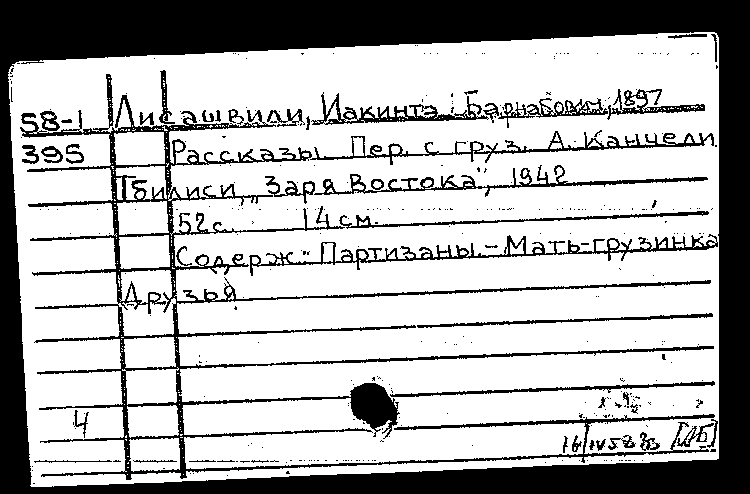 58-1 Лисашвили, Иакинтэ Барнабович, 1897
395 Рассказы. Пер. с груз. А. Канчели
Тбилиси, „Заря Востока", 1942
52с. 14 см.
Содерж.: Партизаны.-Мать-грузинка
Друзья
4
16/IV 58 [АБ]